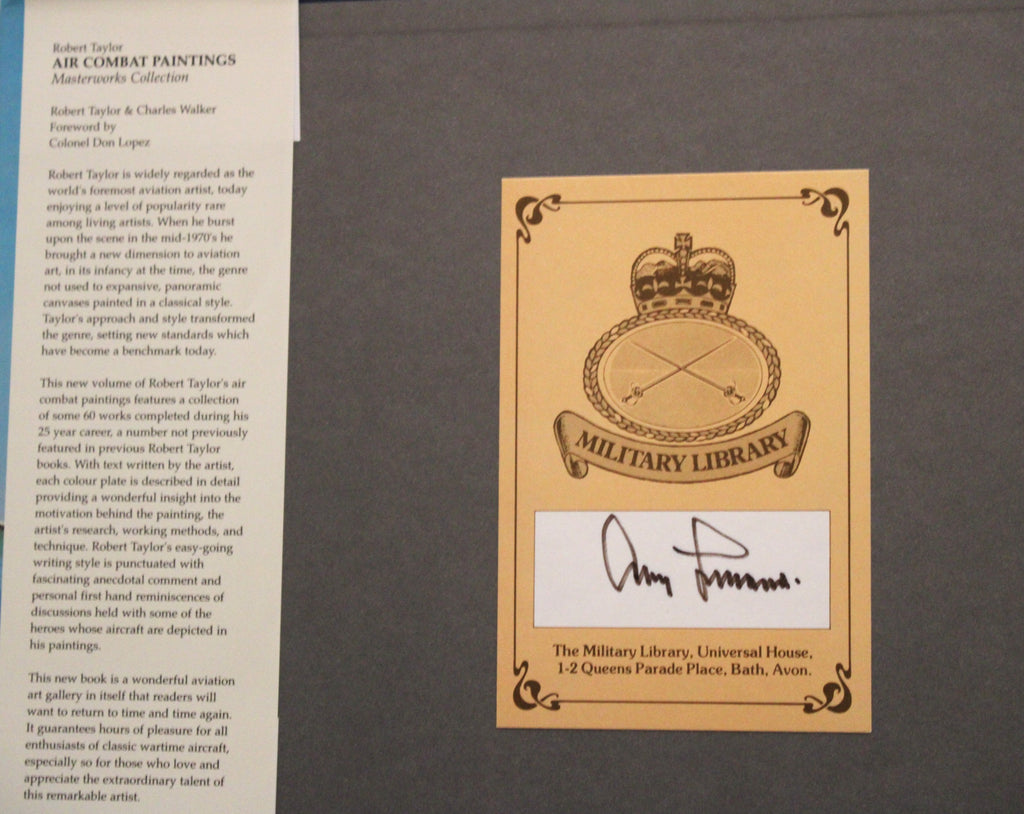 Robert Taylor
AIR COMBAT PAINTINGS
Masterworks Collection
Robert Taylor & Charles Walker
Foreword by
Colonel Don Lopez
Robert Taylor is widely regarded as the
world's foremost aviation artist, today
enjoying a level of popularity rare
among living artists. When he burst
upon the scene in the mid-1970's he
brought a new dimension to aviation
art, in its infancy at the time, the genre
not used to expansive, panoramic
canvases painted in a classical style.
Taylor's approach and style transformed
the genre, setting new standards which
have become a benchmark today.
This new volume of Robert Taylor's air
combat paintings features a collection
of some 60 works completed during his
25 year career, a number not previously
featured in previous Robert Taylor
books. With text written by the artist,
each colour plate is described in detail
providing a wonderful insight into the
motivation behind the painting, the
artist's research, working methods, and
technique. Robert Taylor's easy-going
writing style is punctuated with
fascinating anecdotal comment and
personal first hand reminiscences of
discussions held with some of the
heroes whose aircraft are depicted in
his paintings.
This new book is a wonderful aviation
art gallery in itself that readers will
want to return to time and time again.
It guarantees hours of pleasure for all
enthusiasts of classic wartime aircraft,
especially so for those who love and
appreciate the extraordinary talent of
this remarkable artist.
MILITARY LIBRARY
The Military Library, Universal House,
1-2 Queens Parade Place, Bath, Avon.